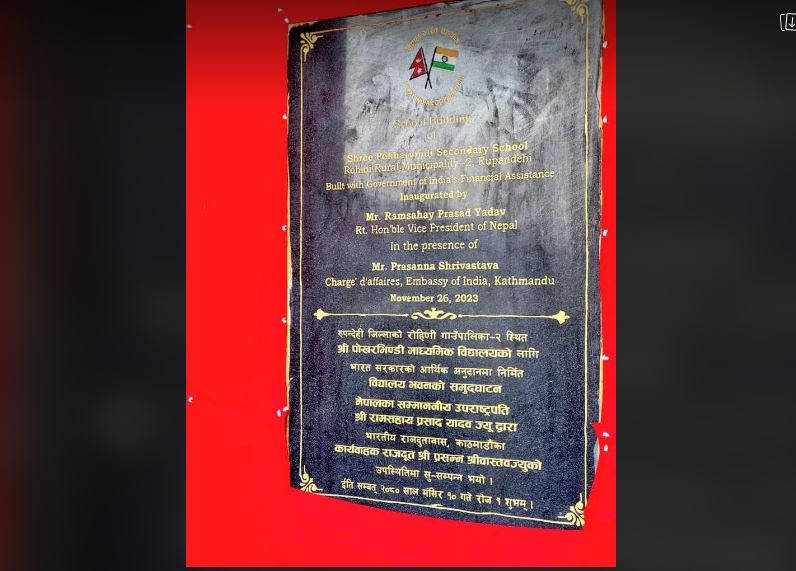 School Building
of
Shree Pokharvindi Secondary School
Rohini Rural Municipality-2, Rupandehi
Built with Government of India's Financial Assistance
Inaugurated by
Mr. Ramsahay Prasad Yadav
Rt. Hon'ble Vice President of Nepal
In the presence of
Mr. Prasanna Shrivastava
Charge' d'affaires, Embassy of India, Kathmandu
November 26, 2023
रुपन्देही जिल्लाको रोहिणी गाउँपालिका-२ स्थित
श्री पोखरभिण्डी माध्यमिक विद्यालयको लागि
भारत सरकारको आर्थिक अनुदानमा निर्मित
विद्यालय भवनको समुदघाटन
नेपालका सम्माननीय उपराष्ट्रपति
श्री रामसहाय प्रसाद यादव ज्यू द्वारा
भारतीय राजदुतावास, काठमाडौंका
कार्यवाहक राजदूत श्री प्रसन्न श्रीवास्तवज्युको
उपस्थितिमा सु-सम्पन्न भयो ।
ईति सम्बत् २०८० साल मंसिर १० गते रोज १ शुभम् ।